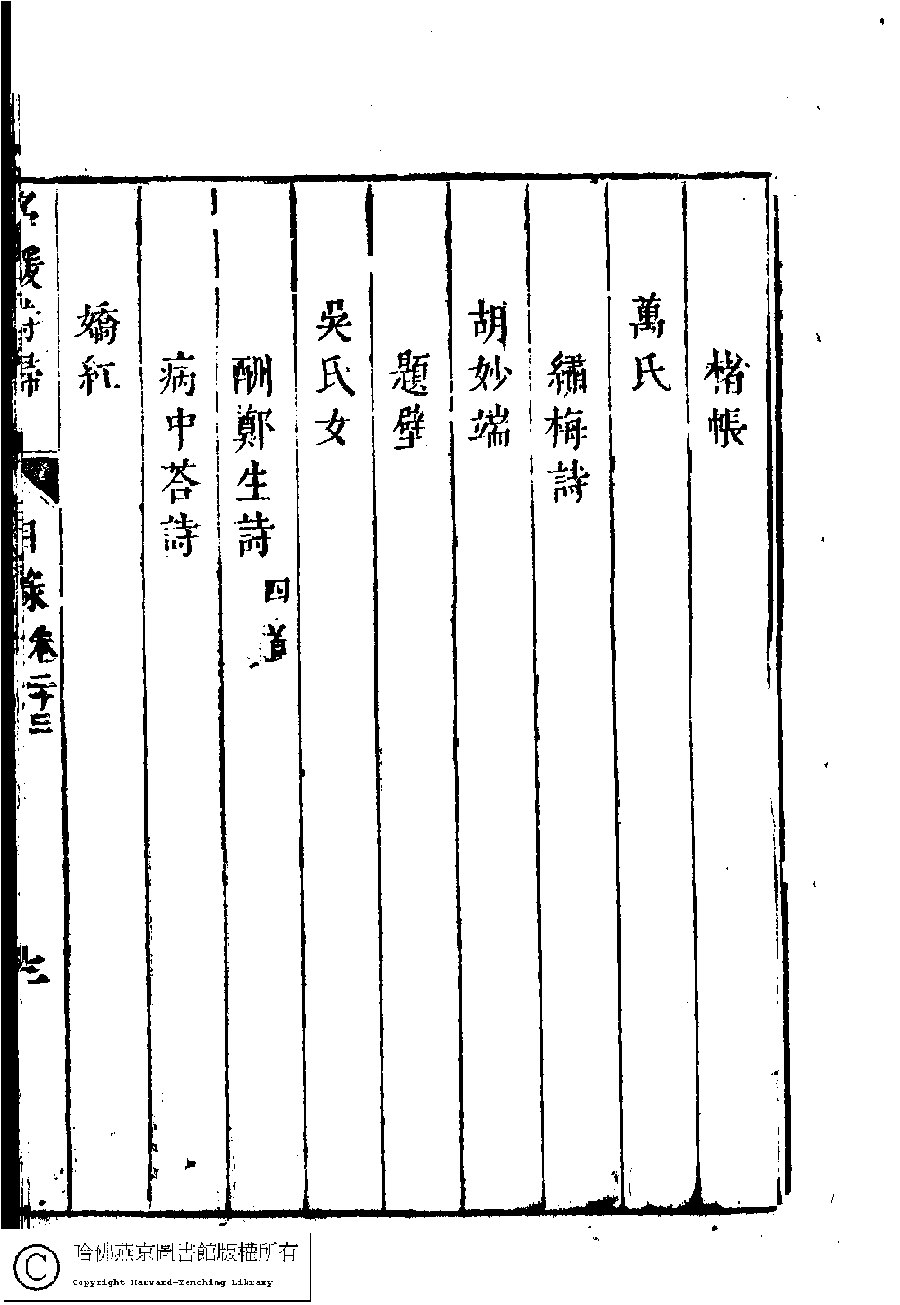 楮帳
萬氏
繡梅詩
胡妙端
題壁
吳氏女
酬鄭生詩 四首
病中荅詩
嬌紅
名媛詩歸
目錄 卷二十三
哈佛燕京圖書館版權所有
Copyright Harvard-Yenching Library